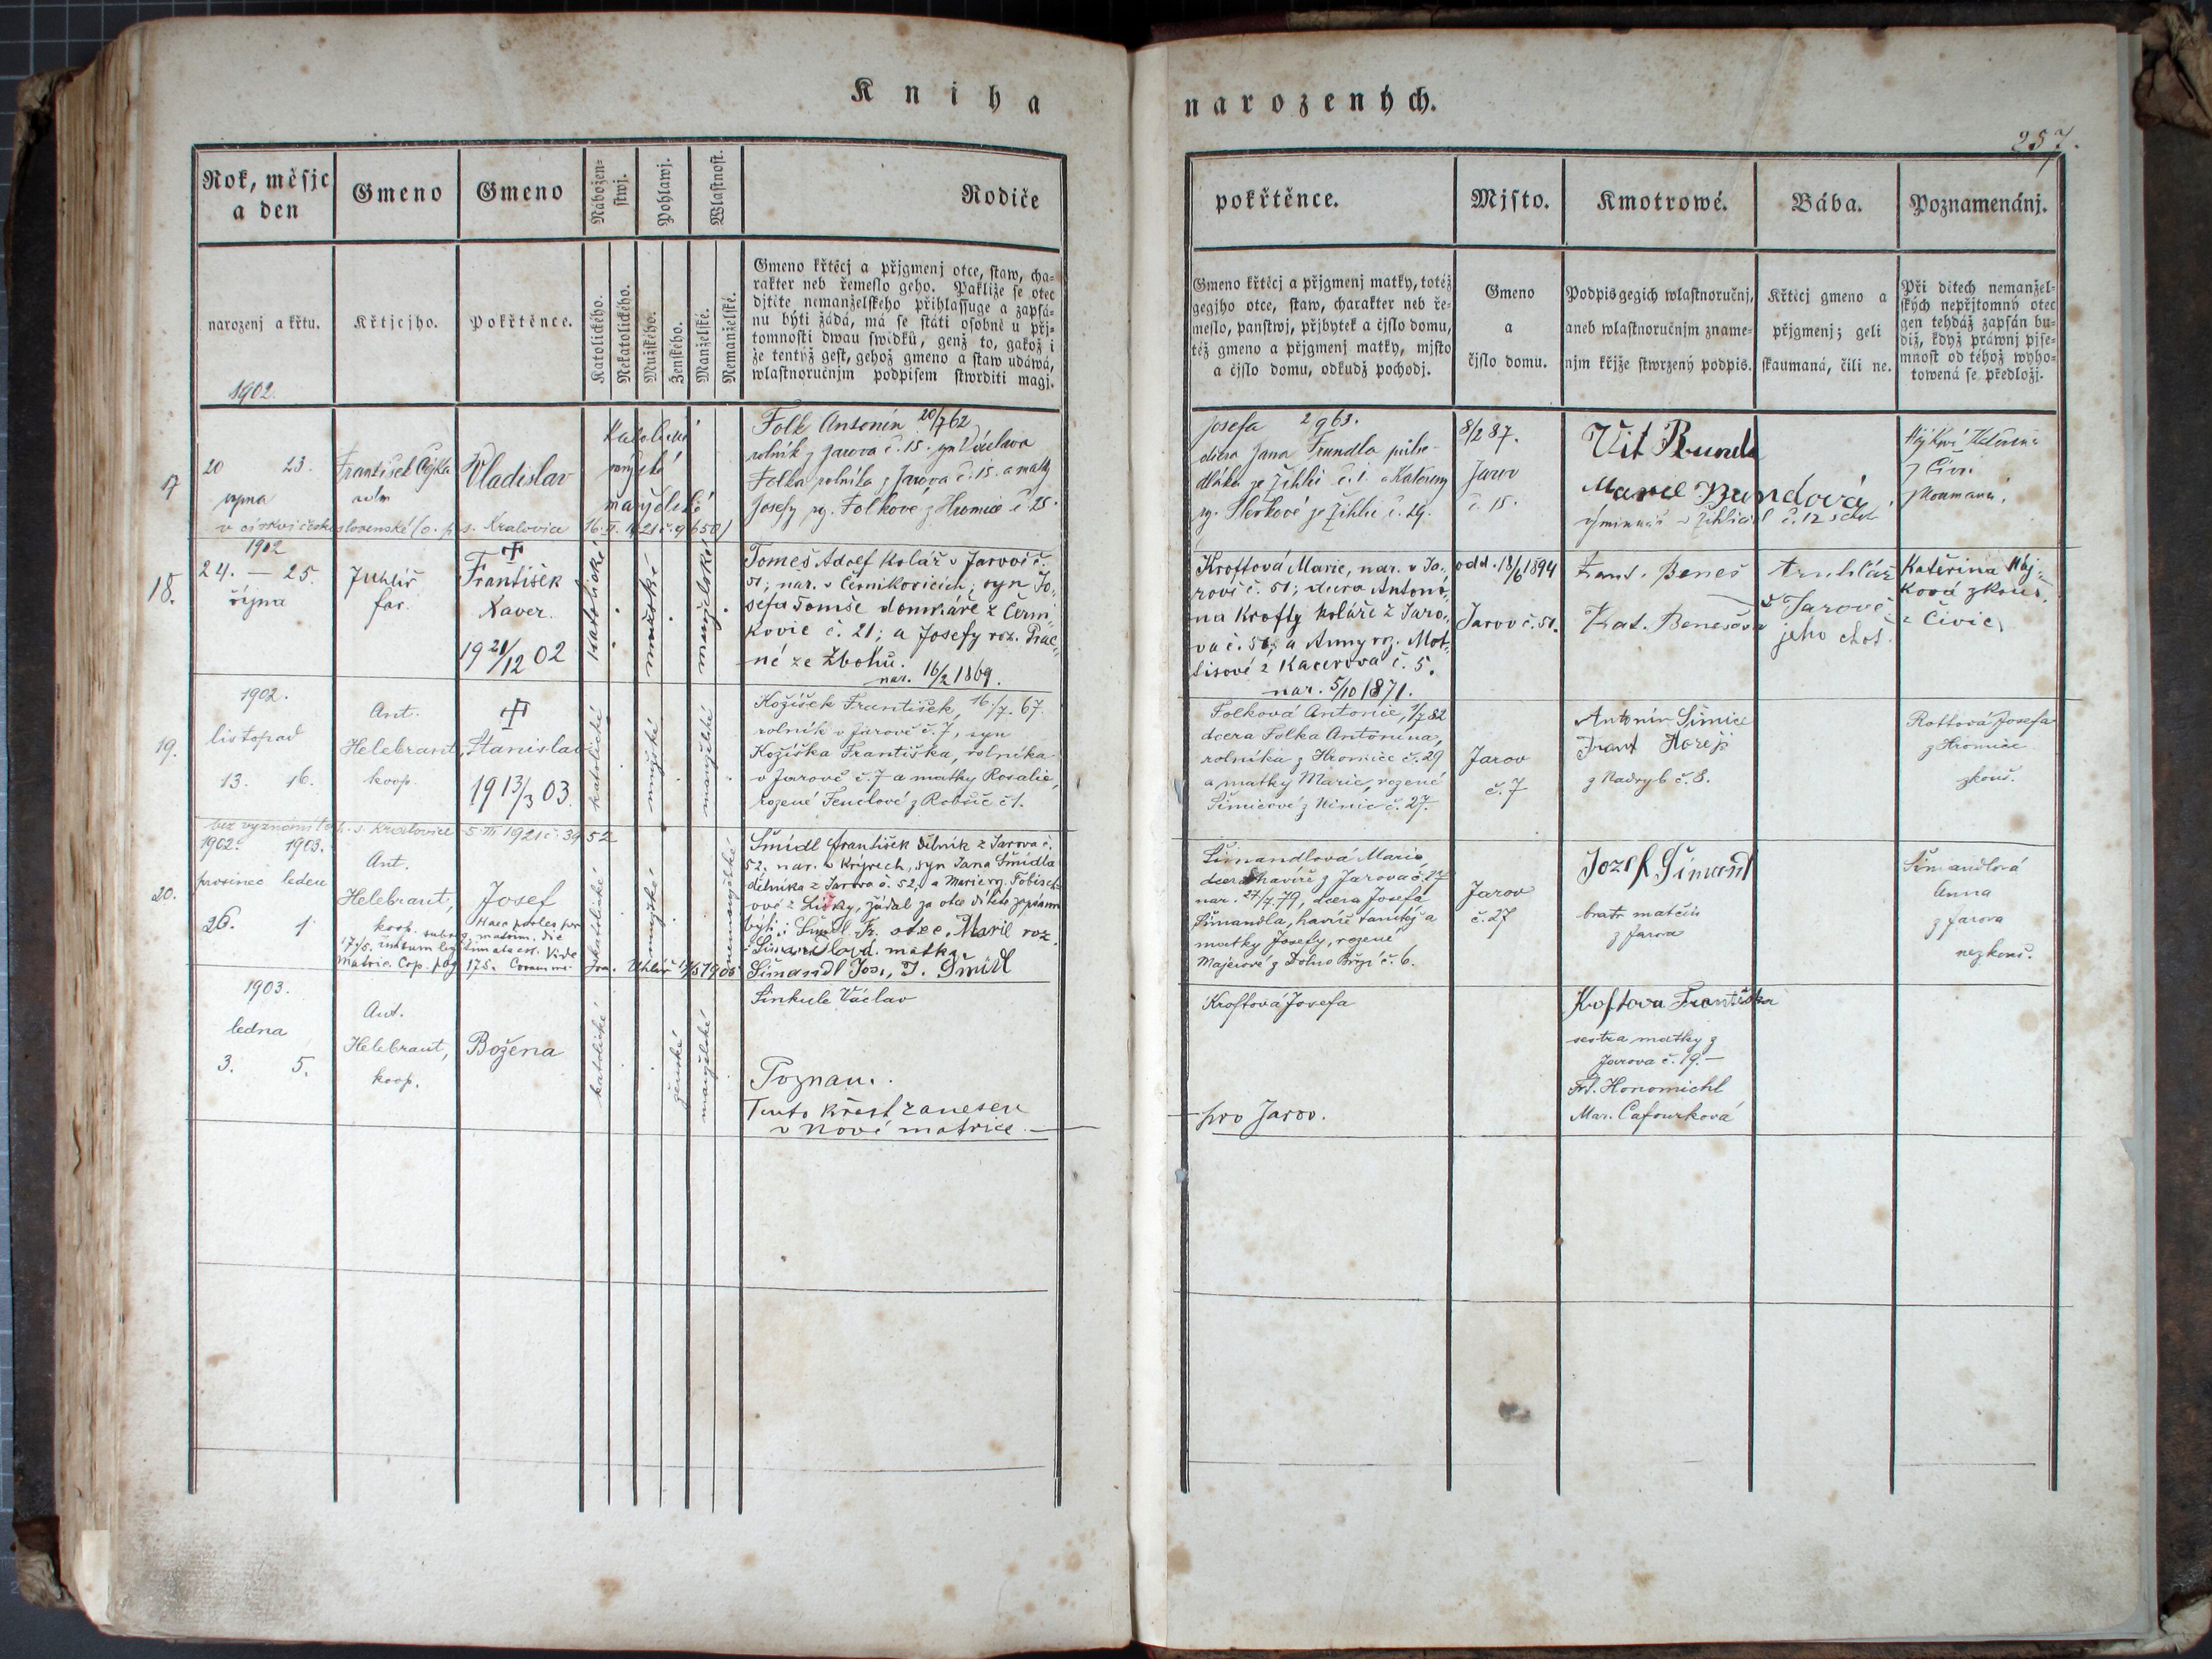 Kniha
narozených.
257.
Rok, měsjc a den
Gmeno
Gmeno
Nábožen-stwj.
Pohlawj.
Wlastnost.
Rodiče
pokřtěnce.
Mjsto.
Kmotrowé.
Bába.
Poznamenánj.
narozenj a křtu.
1902.
Křtjcjho.
Pokřtěnce.
Katolického.
Nekatolického.
Mužského.
Ženského.
Manželské.
Nemanželské.
Gmeno křtěcj a přjgmenj otce, staw, cha-
rakter neb řemeslo geho. Pakliže se otec
djtěte nemanželského přihlassuge a zapsá-
nu býti žádá, má se státi osobně u přj-
tomnosti dwau swědků, genž to, gakož i
že tentýž gest, gehož gmeno a staw udáwá,
wlastnoručnjm podpisem stwrditi magj.
Gmeno křtěcj a přjgmenj matky, totéž
gegjho otce, staw, charakter neb ře-
meslo, panstwj, přjbytek a čjslo domu,
též gmeno a přjgmenj matky, mjsto
a čjslo domu, odkudž pocházj.
Gmeno
a
čjslo domu.
Podpis gegich wlastnoručnj,
aneb wlastnoručnjm zname-
njm křjže stwrzený podpis.
Křtěcj gmeno a
přjgmenj; geli
skaumaná, čili ne.
Při dětech nemanžel-
ských nepřjtomný otec
gen tehdáž zapsán bu-
diž, když práwnj pjse-
mnost od téhož wyho-
towená se předložj.
17
20 23.
srpna
František Čejka
Vladislav
Katolické
mužské
manželské
Folk Antonín 20/7 62
rolník z Jarova č. 15. syn Václava
Folka rolníka z Jarova č. 15. a matky
Josefy rz. Folkové z Hromic č. 25.
Josefa 2 9 63.
dcera Jana Trundla půlse-
dláka ze Žihle č. 1. a Kateřiny
rz. Sterkové ze Žihle č. 29.
8/2 87.
Jarov
č. 15.
Vít Bunda
Marie Bundová
Hájková Kateřina
z Čivic
v církvi československé (o. p. s. Kralovice 16. II. 1921 č. 9650)
18.
1902
24. — 25.
října
Juhlíř
far.
František
Xaver.
19 21/12 02
katolické
mužské
manželské
Tomeš Adolf kolář v Jarově č.
51; nar. v Černíkovicích; syn Jo-
sefa Tomše domkáře z Černí-
kovic č. 21; a Josefy roz. Prac-
né ze Zbohů.
nar. 16/2 1869.
Kroftová Marie, nar. v Ja-
rově č. 51; dcera Antoní-
na Krofty koláře z Jaro-
va č. 51; a Anny rz. Mot-
lisové z Kacerova č. 5.
nar. 5/10 1871.
odd. 18/6 1894
Jarov č. 51.
Frant. Beneš
Kat. Benešová
truhlář
z Jarově
jeho choť
Kateřina Háj-
ková zkouš.
z Čivic
19.
1902.
listopad
13. 16.
Ant.
Helebrant,
koop.
Stanislav
19 13/3 03.
katolické
mužské
manželské
Kožíšek František, 16./7. 67.
rolník v Jarově č. 7, syn
Kožíška Františka, rolníka
v Jarově č. 7 a matky Rosalie,
rozené Fenclové z Robčic č 1.
Folková Antonie, 1/7 82
dcera Folka Antonína,
rolníka z Hromice č. 29
a matky Marie, rozené
Šimicové z Ninic č. 27.
Jarov
č. 7
Antonín Šimice
Frant Horejš
z Nadryb č. 8.
Rottová Josefa
z Hromice
zkouš.
bez vyznání (o. p. s. Kralovice 5. III 1921 č. 3952
20.
1902. 1903.
prosinec leden
26. 1.
Ant.
Helebrant,
koop.
Josef
Haec proles per
subseq. matrim. die
17/5. initum legitimata est. Vide
Matric. Cop. pag 175.
katolické
mužské
nemanželské
Šmídl František dělník z Jarova č.
52. nar. v Kryrech, syn Jana Šmídla
dělníka z Jarova č. 52. a Marie rz. Tobisch-
ové z Lišky, žádal za otce dítěte zapsánu
býti: Šmídl Fr. otec, Marie roz.
Šimandlová. matka
Šimandl Jos., J. Šmídl
Šimandlová Marie
dcera havíře z Jarova č. 27
nar. 27/7. 79, dcera Josefa
Šimandla, havíře tamtéž a
matky Josefy, rozené
Majerové z Dolno Bříz č. 6.
Jarov
č. 27
Jozef Šimandl
bratr matčin
z Jarova
Šimandlová
Anna
z Jarova
nezkouš.
1903.
ledna
3. 5.
Ant.
Helebrant,
koop.
Božena
katolické
ženské
manželské
Šinkule Václav
Poznam..
Tento křest zanesen
v nové matrice —
Kroftová Josefa
pro Jarov.
Kroftova Františka
sestra matky z
Jarova č. 19. —
Frt. Honomichl
Mar. Cafourková